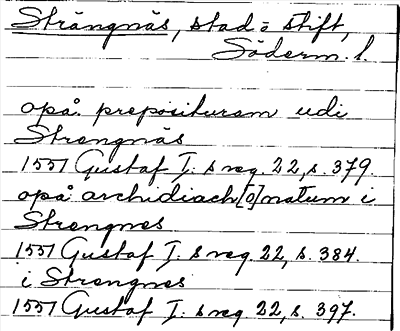 Strängnäs, stad o stift,
Söderm. l.
opå preposituram udi
Strengnäs
1551 Gustaf I:s reg. 22, s. 379
opå archidiach[o]natum i
Strengnes
1551 Gustaf I:s reg. 22, s. 384.
i Strengnes
1551 Gustaf I:s reg. 22, s. 397.